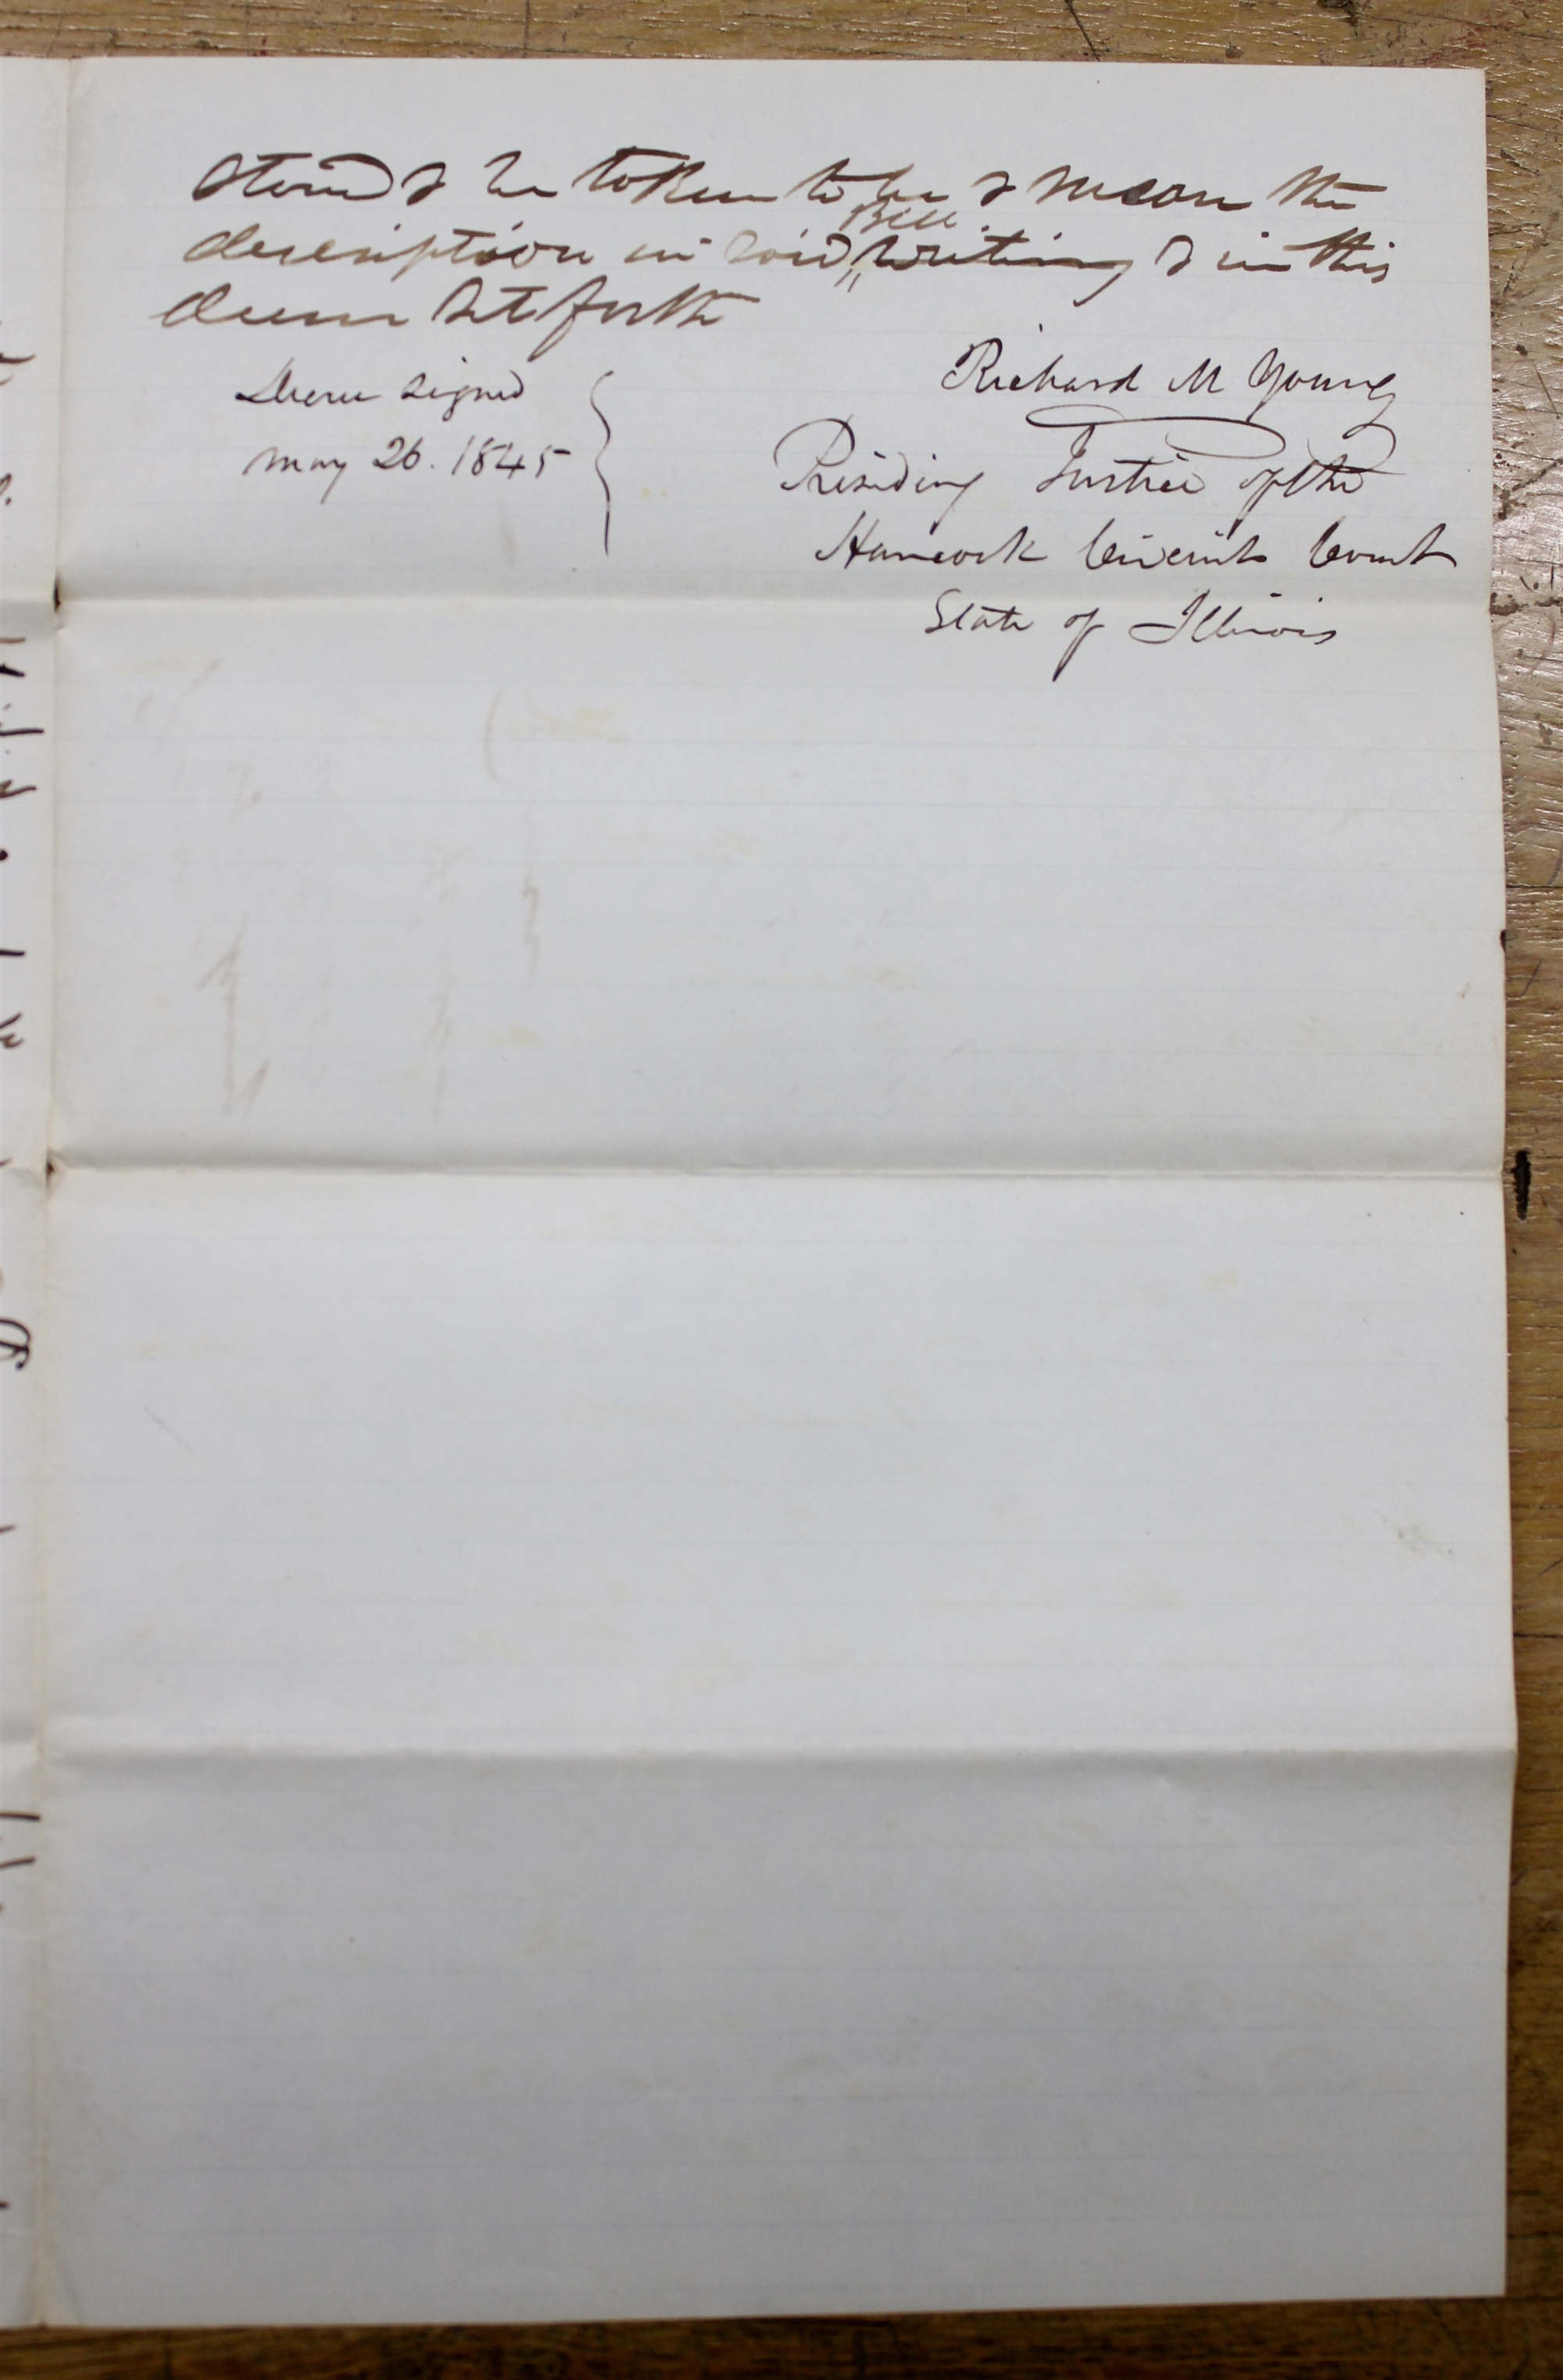 stand & be taken to be & mean the
description in said Bill writing & in this
decree set forth
Decree signed
May 26. 1845
Richard M Young
Presiding Justice of the
Hancock Circuit Court
State of Illinois